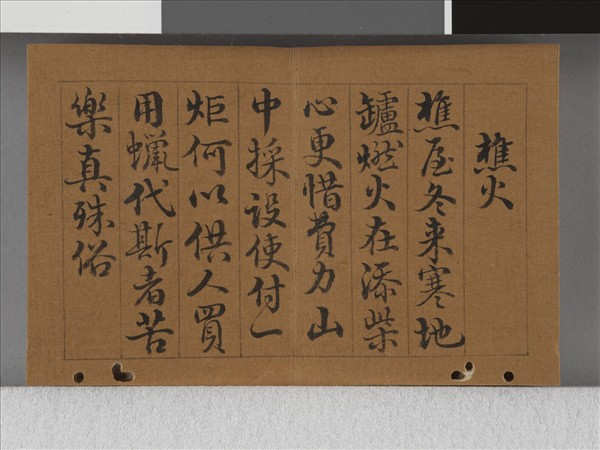 樵火
樵屋冬来寒地
鑪燃火在添柴
心更惜費力山
中採设使付一
炬何以供人買
用蠟代斯者苦
樂真殊俗